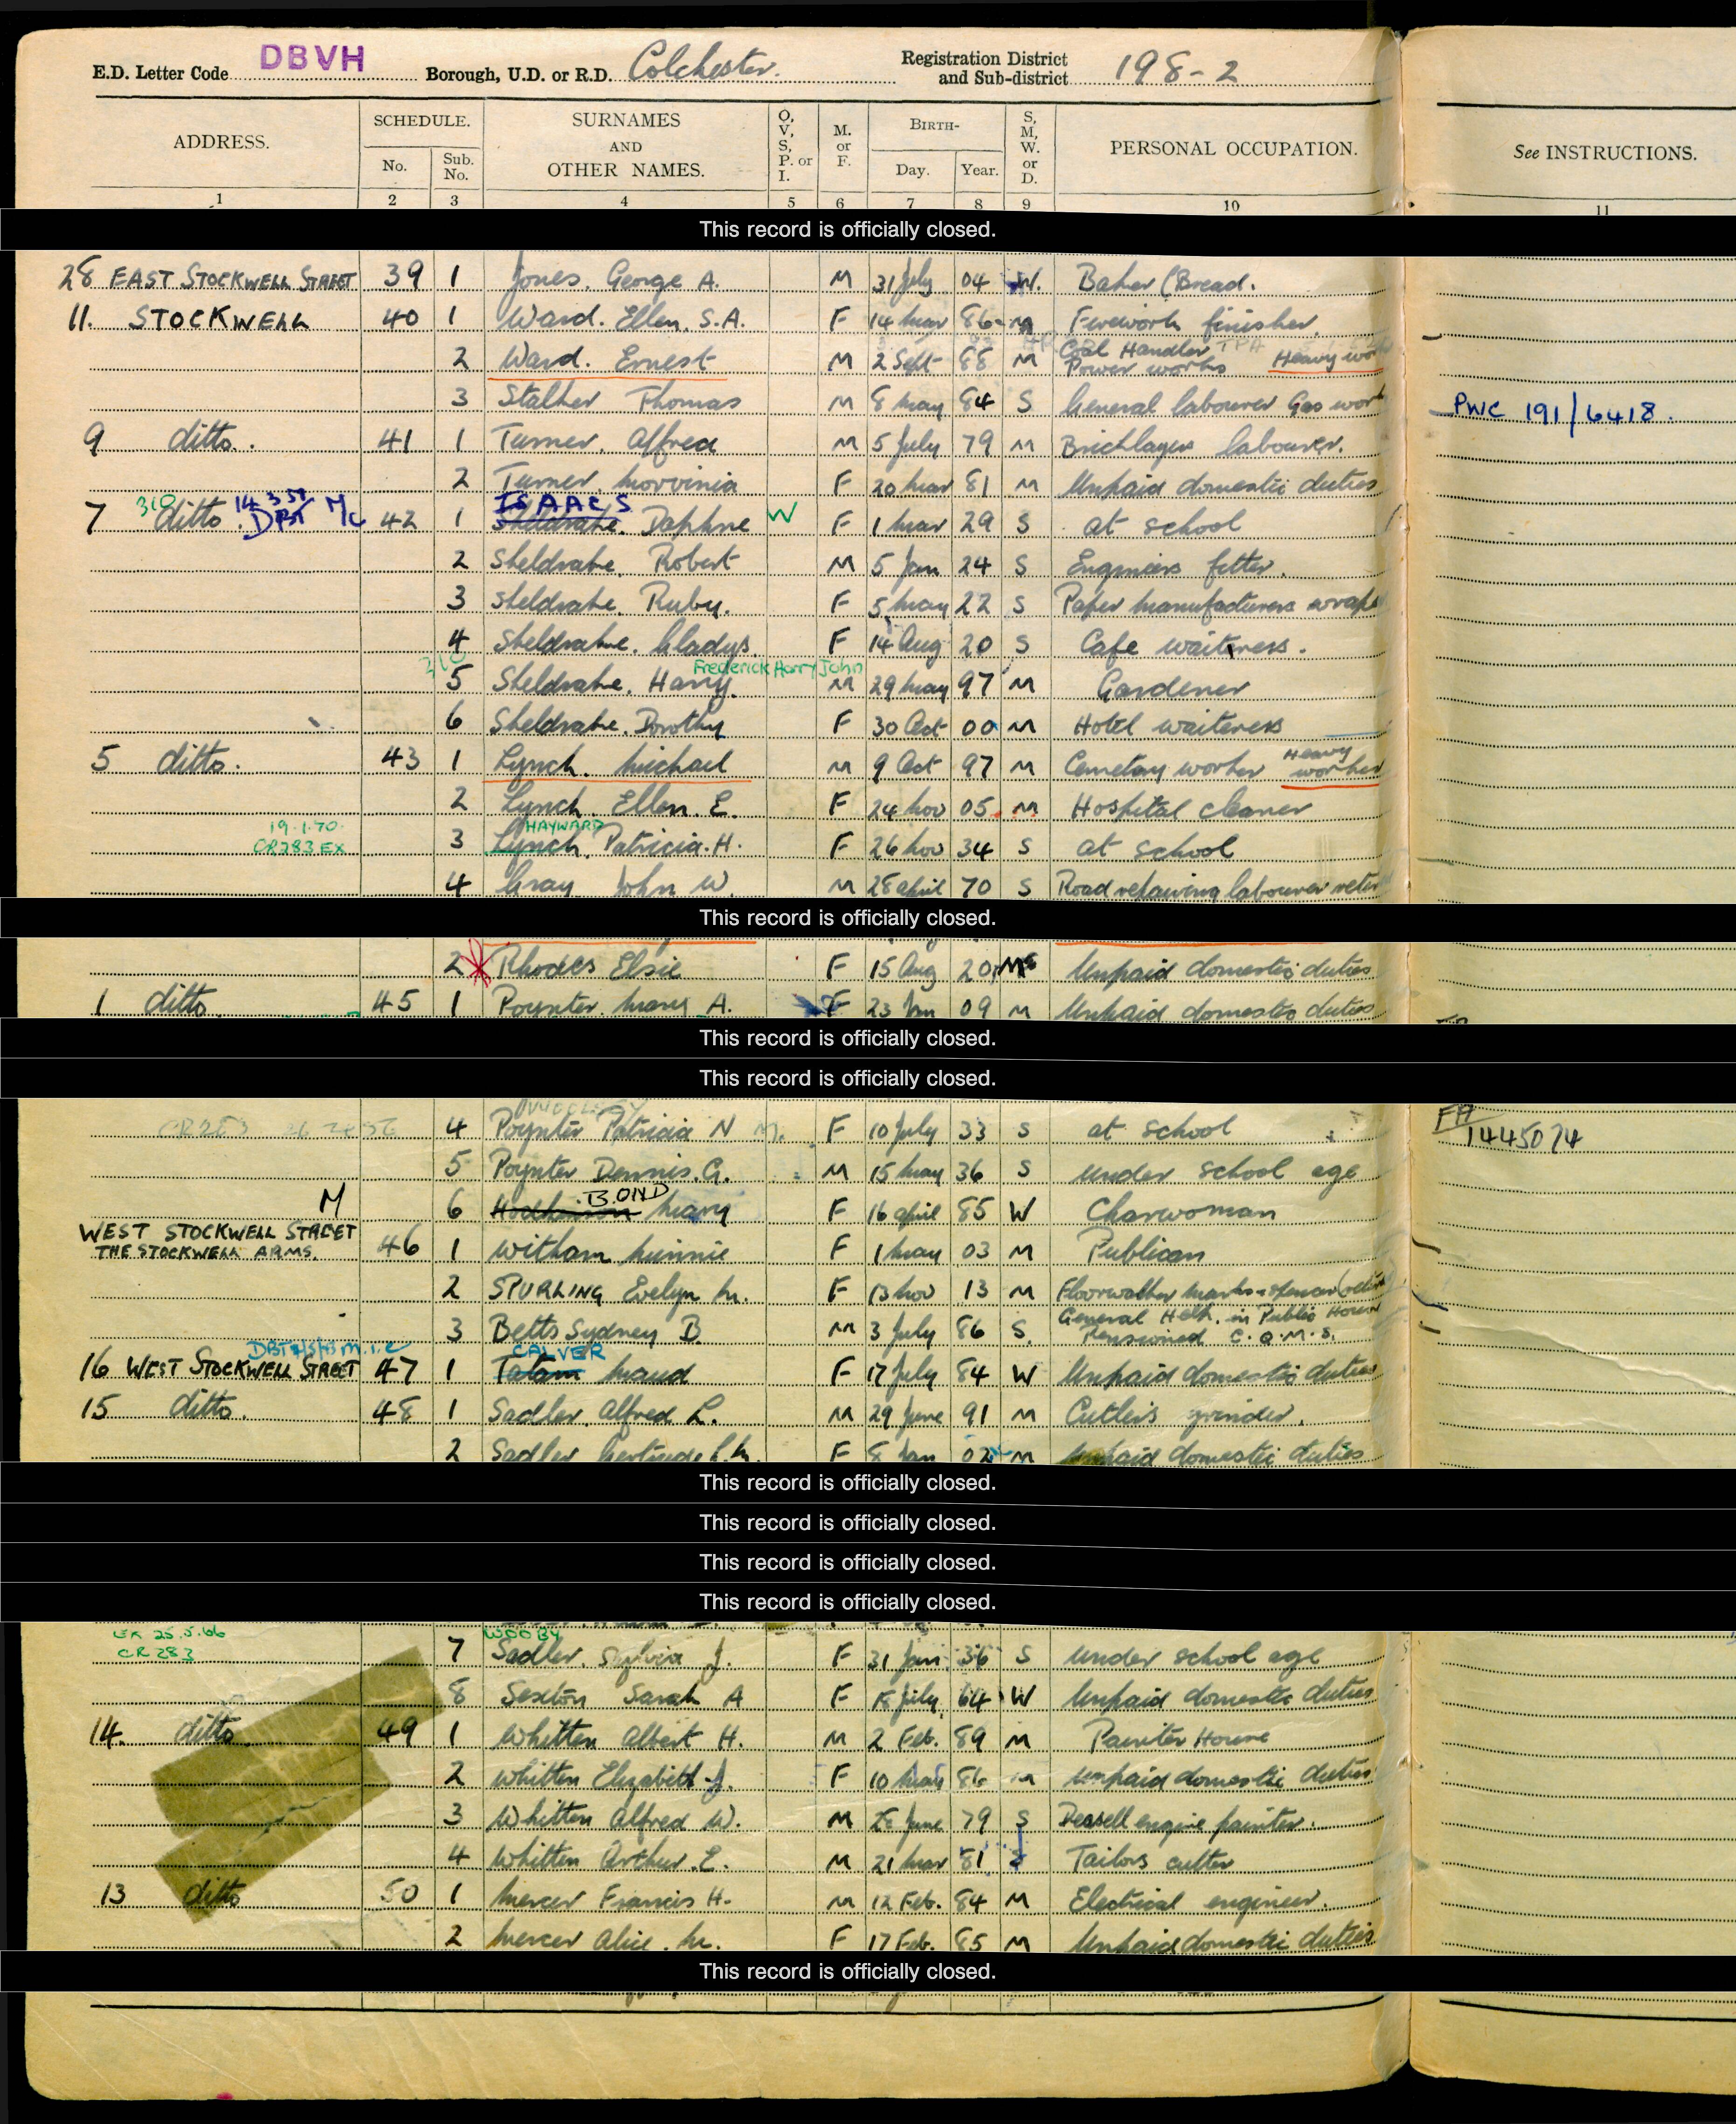 E.D. Letter Code DBVH Borough, U.D. or R.D. Colchester. Registration District and Sub-district 198-2
ADDRESS. SCHEDULE. No. Sub. No. SURNAMES AND OTHER NAMES. O, V, S, P. or I. M. or F. BIRTH- Day. Year. S, M, W. or D. PERSONAL OCCUPATION. See INSTRUCTIONS.
1 2 3 4 5 6 7 8 9 10 11
This record is officially closed.
28 EAST STOCKWELL STREET 39 1 Jones. George A. M 31 July 04 W. Baker (Bread.
11. STOCKWELL 40 1 Ward. Ellen. S.A. F 14 Mar 86 M Firework finisher.
2 Ward. Ernest M 2 Sept 88 M Coal Handler Power works Heavy wor
3 Stalker Thomas M 8 May 84 S General labourer Gas work
PWC 191/6418.
9 ditto. 41 1 Turner. Alfred M 5 July 79 M Bricklayers labourer.
2 Turner. Morvinia F 20 Mar 81 M Unpaid domestic duties
ISAACS
7 ditto. 42 1 Sheldrake. Daphne W F 1 Mar 29 S at school
2 Sheldrake. Robert M 5 Jan 24 S Engineers fitter.
3 Sheldrake. Ruby. F 5 May 22 S Paper manufacturers wrapp
4 Sheldrake. Gladys. F 14 Aug 20 S Cafe waitress.
Frederick Harry John
5 Sheldrake. Harry. M 29 May 97 M Gardener
6 Sheldrake. Dorothy F 30 Oct 00 M Hotel waitress
5 ditto. 43 1 Lynch. Michael M 9 Oct 97 M Cemetery worker Heavy worker
2 Lynch. Ellen. E. F 24 Nov 05 M Hospital cleaner
19.1.70. HAYWARD
CR283 EX 3 Lynch. Patricia. H. F 26 Nov 34 S at school
4 Gray John W. M 28 April 70 S Road repairing labourer retir
This record is officially closed.
2 Rhodes Elsie F 15 Aug 20 M Unpaid domestic duties
1 ditto. 45 1 Poynter. Mary A. F 23 Jan 09 M Unpaid domestic duties
This record is officially closed.
This record is officially closed.
CR283 4 Poynter Patricia N M. F 10 July 33 S at school
FA 1445074
5 Poynter Dennis. G. M 15 May 36 S under school age
BOND
M 6 Hodkinson Mary F 16 April 85 W Charwoman
WEST STOCKWELL STREET
THE STOCKWELL ARMS. 46 1 Witham Minnie F 1 May 03 M Publican
2 SPURLING Evelyn M. F 13 Nov 13 M Floorwalker Marks & Spencer
3 Betts Sydney B. M 3 July 86 S. General Help. in Public House Pensioned C.Q.M.S.
CALVER
16 WEST STOCKWELL STREET 47 1 Tatam Maud F 17 July 84 W Unpaid domestic duties
15 ditto. 48 1 Sadler. Alfred L. M 29 June 91 M Cutlers grinder.
2 Sadler Gertrude F 8 Jan 02 M Unpaid domestic duties
This record is officially closed.
This record is officially closed.
This record is officially closed.
This record is officially closed.
25.5.66 WOOBY
CR 283 7 Sadler. Sylvia J. F 31 Jan 36 S under school age
8 Sexton Sarah A F 18 July 64 W Unpaid domestic duties
14. ditto. 49 1 Whitten Albert H. M 2 Feb. 89 M Painter House
2 Whitten Elizabeth J. F 10 May 86 M Unpaid domestic duties
3 Whitten Alfred W. M 28 June 79 S Dessell engine painter.
4 Whitten Arthur. E. M 21 Mar 81 S Tailors cutter
13 ditto 50 1 Mercer Francis H. M 12 Feb. 84 M Electrical engineer.
2 Mercer Alice. M. F 17 Feb. 85 M Unpaid domestic duties
This record is officially closed.